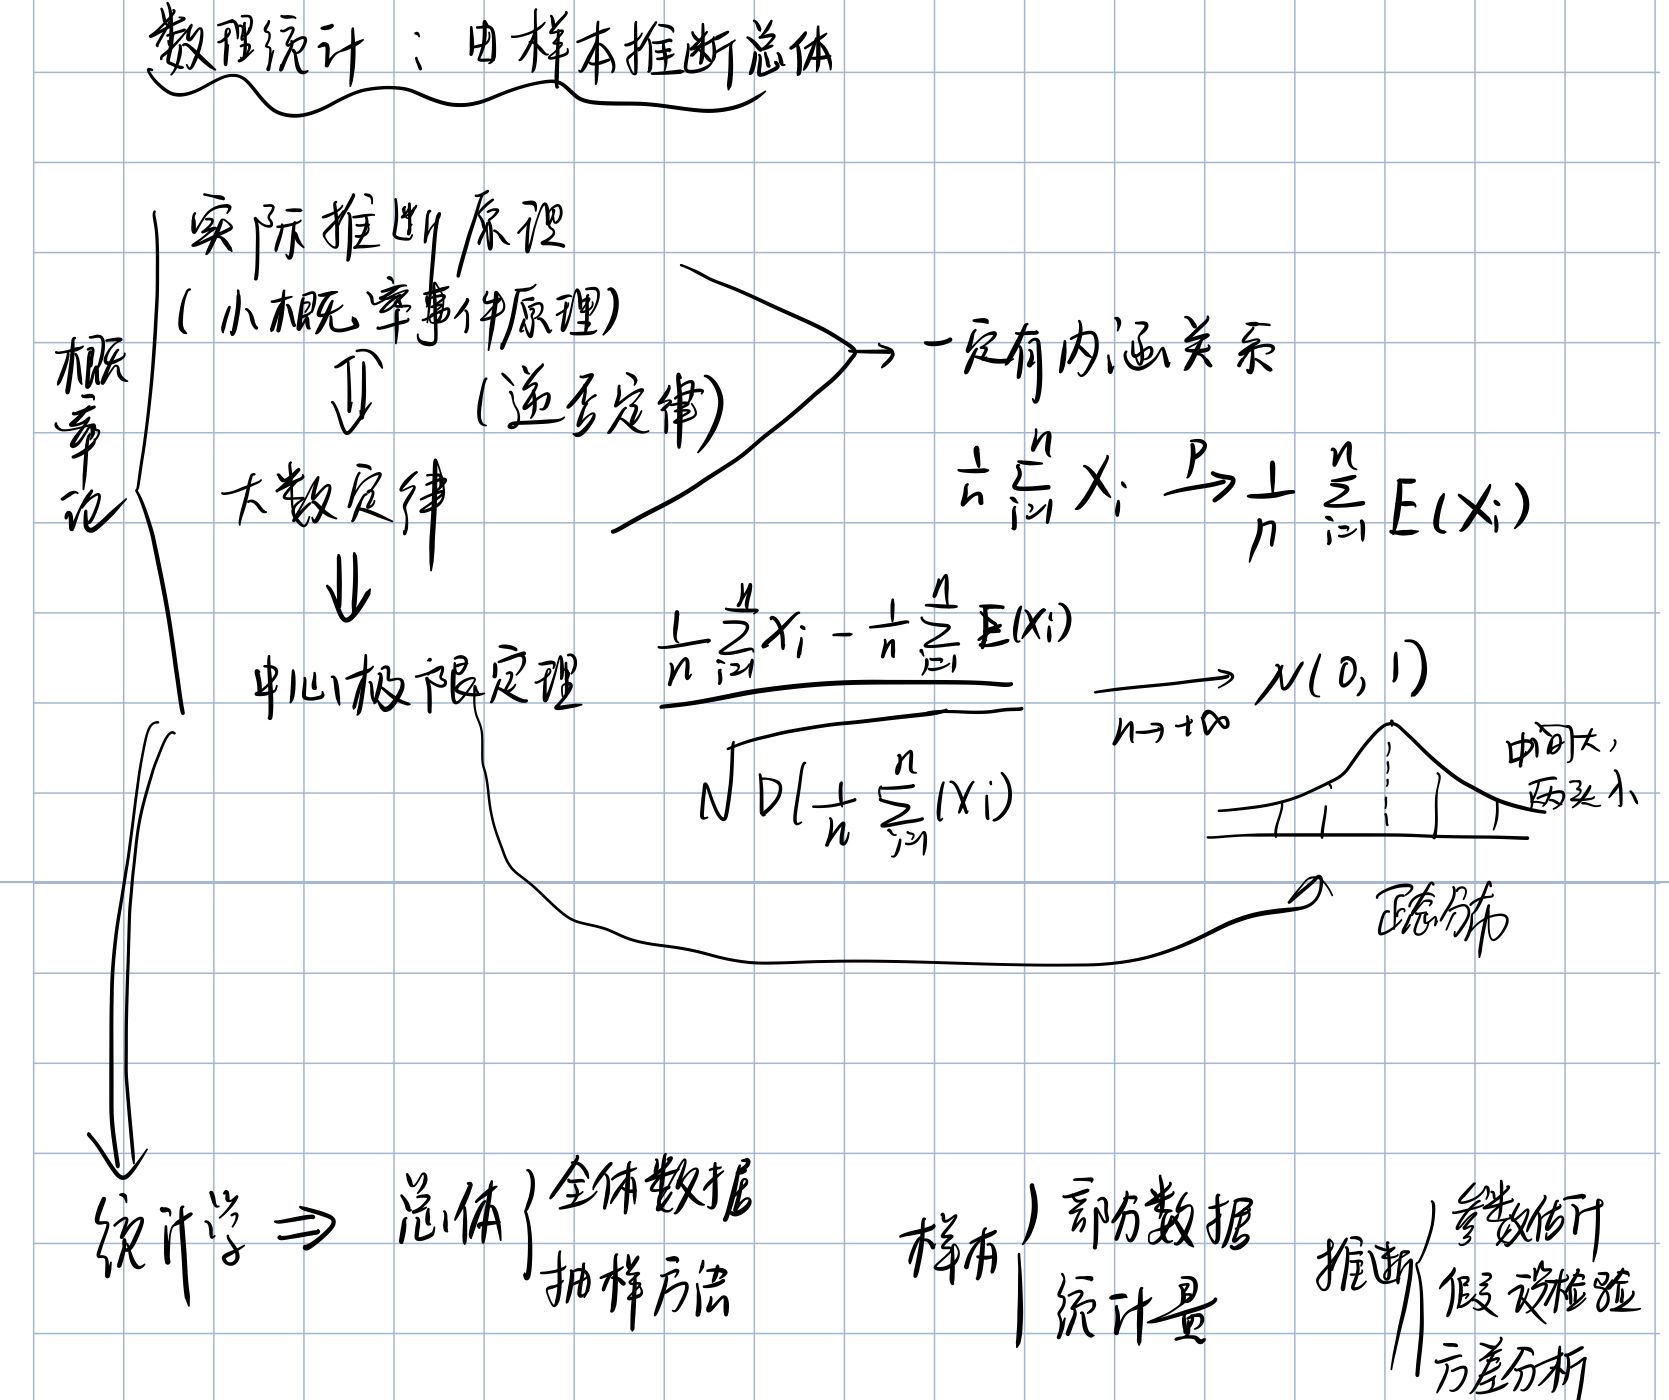 数理统计：由样本推断总体
概率论
实际推断原理
(小概率事件原理)
(逆否定律)
大数定律
一定有内涵关系
1/n ∑_{i=1}^{n} X_i →^P 1/n ∑_{i=1}^{n} E(X_i)
中心极限定理
1/n ∑_{i=1}^{n} X_i - 1/n ∑_{i=1}^{n} E(X_i)
√D(1/n ∑_{i=1}^{n} (X_i)
n→+∞
N(0, 1)
中间大，
两头小
正态分布
统计学 ⇒
总体
全体数据
抽样方法
样本
部分数据
统计量
推断
参数估计
假设检验
方差分析